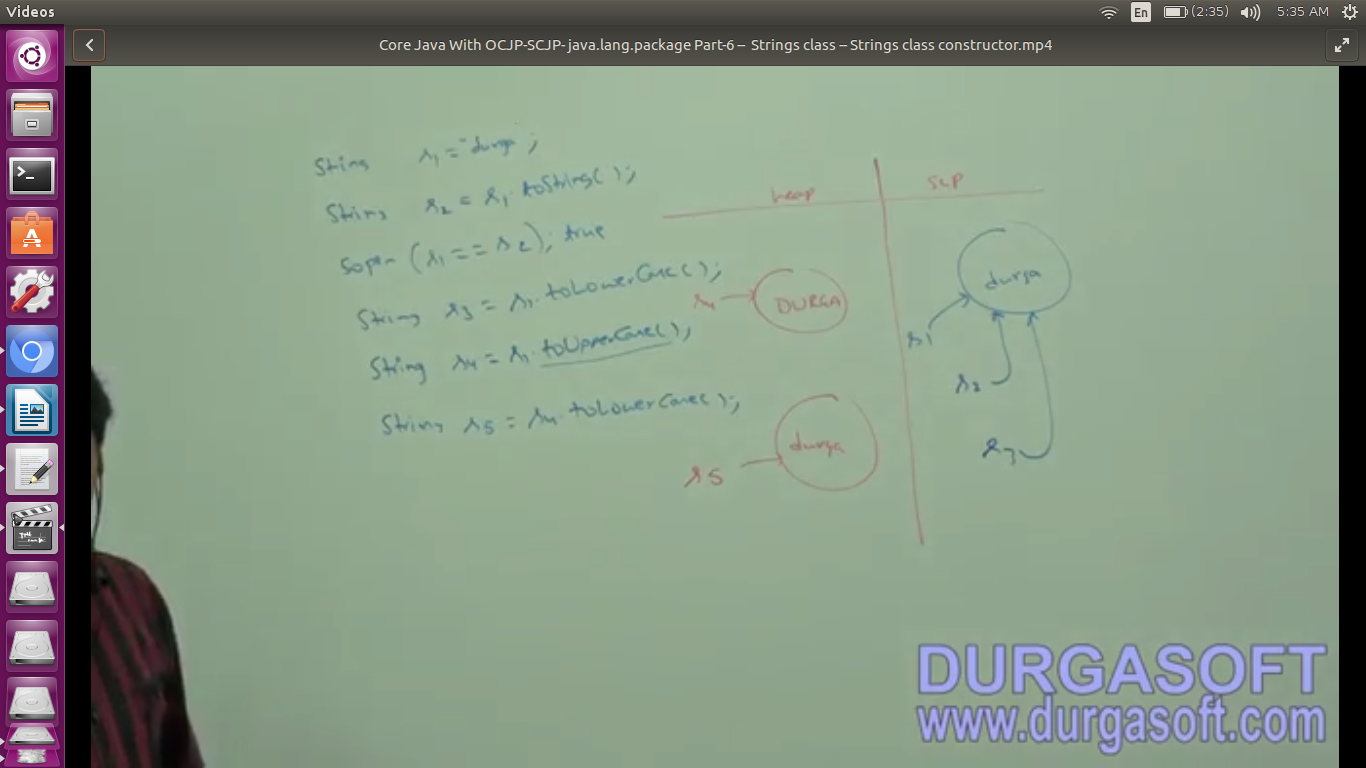 Videos
En
(2:35)
5:35 AM
Core Java With OCJP-SCJP- java.lang.package Part-6 – Strings class – Strings class constructor.mp4
String s1 = "durga";
String s2 = s1.toString();
sopln (s1 == s2); true
String s3 = s1.toLowerCase();
String s4 = s1.toUpperCase();
String s5 = s4.toLowerCase();
heap
scp
s4
DURGA
s5
durga
durga
s1
s2
s3
DURGASOFT
www.durgasoft.com